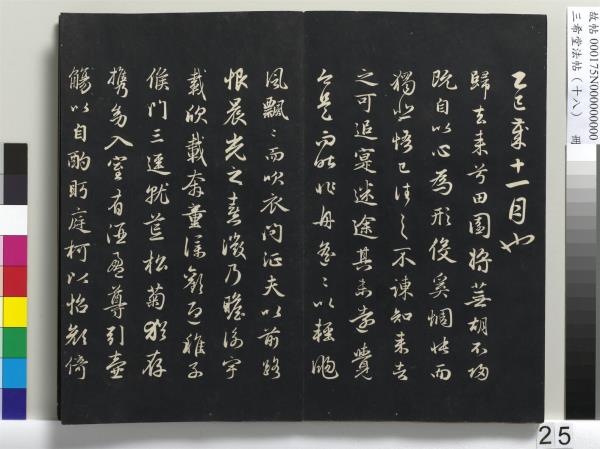 乙巳歲十一月也
歸去来兮田園将蕪胡不歸
既自以心為形役奚惆悵而
獨悲悟已往之不諫知来者
之可追寔迷途其未遠覺
今是而昨非舟遙〻以輕颺
風飄〻而吹衣問征夫以前路
恨晨光之熹微乃瞻衡宇
載欣載奔童僕歡迎稚子
候門三逕就荒松菊猶存
携幼入室有酒盈尊引壺
觴以自酌眄庭柯以怡顔倚
故帖 000175N000000000
三希堂法帖（十八）
25